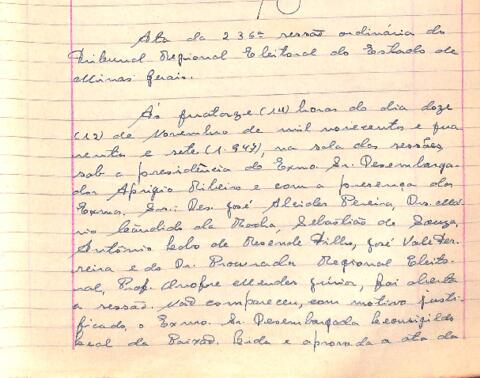 Ata da 236ª sessão ordinária do
Tribunal Regional Eleitoral do Estado de
Minas Gerais.
Ás quatorze (14) horas do dia doze
(12) de Novembro de mil novecentos e qua
renta e sete (1.947), na sala das sessões,
sob a presidência do Exmo. Sr. Desembarga-
dor Aprigio Ribeiro e com a presença dos
Exmos. Srs.: Des. José Alcides Pereira, Drs. Má-
rio Cândido da Rocha, Sebastião de Souza,
Antônio Lobo de Resende Filho, José Vale Fer-
reira e do Dr. Procurador Regional Eleito-
ral, Prof. Onofre Mendes Júnior, foi aberta
a sessão. Não compareceu, com motivo justi-
ficado, o Exmo. Sr. Desembargador Leonigildo
Leal da Paixão. Lida e aprovada a ata da